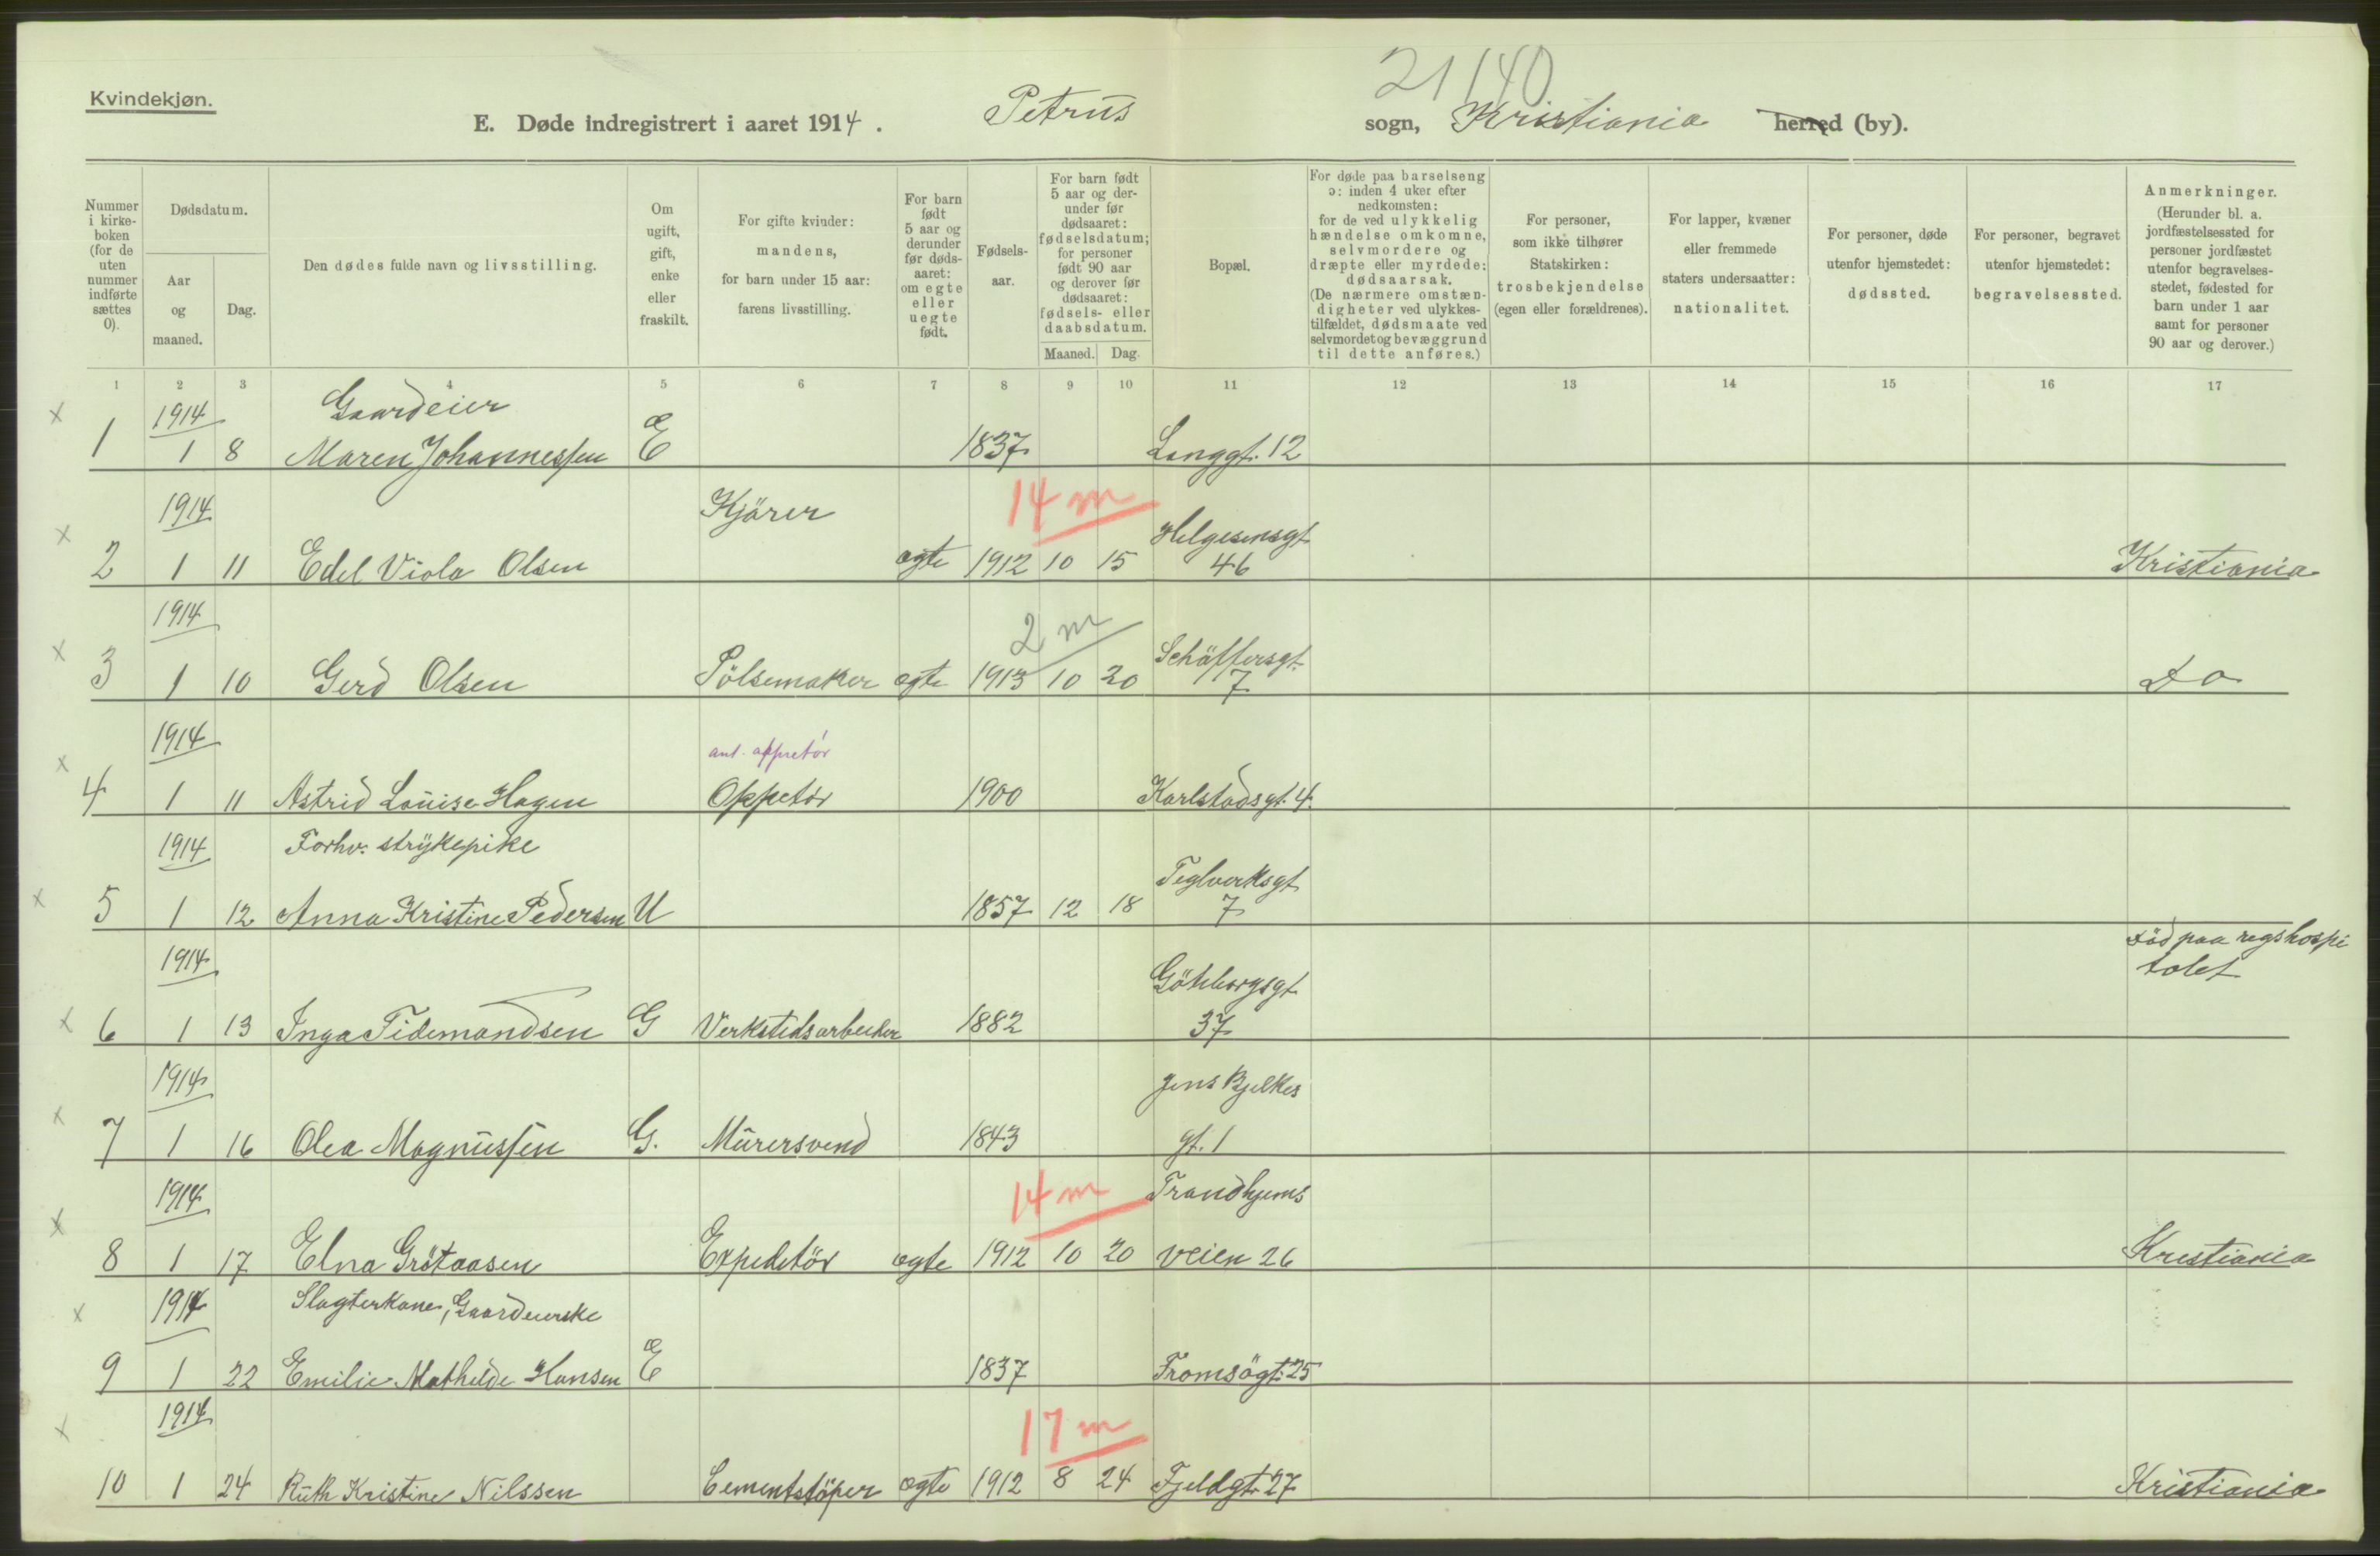 21/40
Kvindekjøn.
E. Døde indregistrert i aaret 1914. Petrus sogn, Kristiania herred (by).
Nummer i kirkeboken (for de uten nummer indførte sættes 0).
Dødsdatum.
Aar og maaned.
Dag.
Den dødes fulde navn og livsstilling.
Om ugift, gift, enke eller fraskilt.
For gifte kvinder: mandens, for barn under 15 aar: farens livsstilling.
For barn født 5 aar og derunder før dødsaaret: om egte eller uegte født.
Fødselsaar.
For barn født 5 aar og derunder før dødsaaret: fødselsdatum; for personer født 90 aar og derover før dødsaaret: fødsels- eller daabsdatum.
Maaned. Dag.
Bopæl.
For døde paa barselseng ɔ: inden 4 uker efter nedkomsten: for de ved ulykkelig hændelse omkomne, selvmordere og dræpte eller myrdede: dødsaarsak. (De nærmere omstændigheter ved ulykkestilfældet, dødsmaate ved selvmordet og bevæggrund til dette anføres.)
For personer, som ikke tilhører Statskirken: trosbekjendelse (egen eller forældrenes).
For lapper, kvæner eller fremmede staters undersaatter: nationalitet.
For personer, døde utenfor hjemstedet: dødssted.
For personer, begravet utenfor hjemstedet: begravelsessted.
Anmerkninger. (Herunder bl. a. jordfæstelsessted for personer jordfæstet utenfor begravelsesstedet, fødested for barn under 1 aar samt for personer 90 aar og derover.)
1 2 3 4 5 6 7 8 9 10 11 12 13 14 15 16 17
x 1914 Gaardeier
1 1 8 Maren Johannessen E 1837 Langgt. 12
1914 Kjörer 14 m Helgesensgt
x 2 1 11 Edel Viola Olsen egte 1912 10 15 46 Kristiania
1914 2 m Schäffersgt.
x 3 1 10 Gerd Olsen Pölsemaker egte 1913 10 20 7 Do
1914 ant. appretör
x 4 1 11 Astrid Louise Hagen Oppetör 1900 Karlstadsgt. 4.
1914 Forhv. strykepike Teglverksgt
x 5 1 12 Anna Kristine Pedersen U 1857 12 18 7
1914 Göteborgsgt död paa regshospi
talet
x 6 1 13 Inga Tidemandsen G Verkstedsarbeider 1882 37
1914 Jens Bjelkes
x 7 1 16 Olea Magnussen G. Murersvend 1843 gt. 1
1914 14 m Trondhjems
x 8 1 17 Elna Grötaasen Expeditör egte 1912 10 20 veien 26 Kristiania
x 1914 Slagterkone, Gaardeierske
9 1 22 Emilie Mathilde Hansen E 1837 Tromsögt. 25
x 1914 17 m
10 1 24 Ruth Kristine Nilssen Cementstöper egte 1912 8 24 Fjeldgt. 27 Kristiania